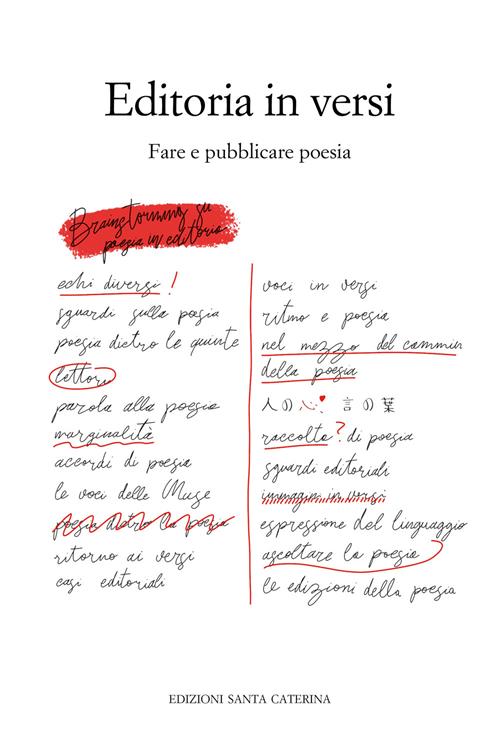 Editoria in versi
Fare e pubblicare poesia
Brainstorming su
poesia in editoria
echi diversi!
sguardi sulla poesia
poesia dietro le quinte
lettori
parola alla poesia
marginalità
accordi di poesia
le voci delle Muse
poesia dietro la poesia
ritorno ai versi
casi editoriali
voci in versi
ritmo e poesia
nel mezzo del cammin
della poesia
人の心 言の葉
raccolta? di poesia
sguardi editoriali
immagini in versi
espressione del linguaggio
ascoltare la poesia
le edizioni della poesia
EDIZIONI SANTA CATERINA